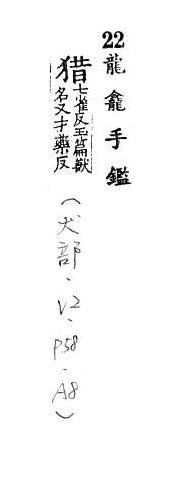 22 龍龕手鑑
猎 七雀反玉篇獸
名又才藥反
(犬部、V2、P58、A8)